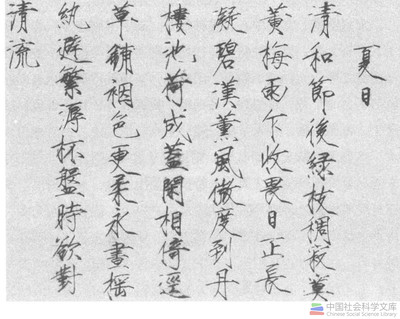 夏日
清和節後綠枝稠寂寞
黃梅雨乍收畏日正長
凝碧漢薰風微度到丹
樓池荷成蓋閑相倚逕
草鋪裀色更柔永晝搖
紈避繁溽杯盤時欲對
清流
中国社会科学文库
Chinese Social Science Library